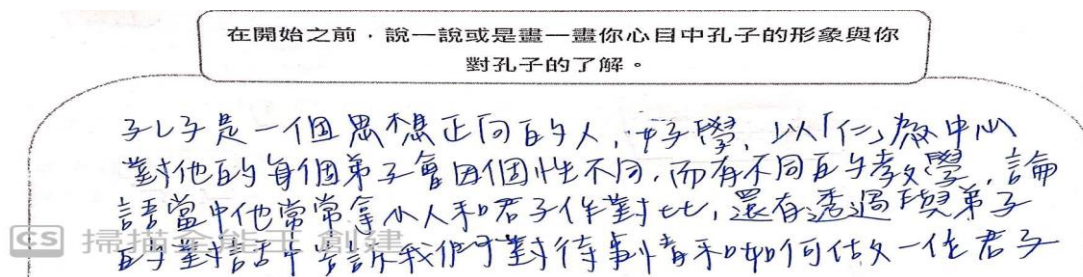 在開始之前，說一說或是畫一畫你心目中孔子的形象與你
對孔子的了解。
孔子是一個思想正向的人，好學，以「仁」為中心
對他的每個弟子會因個性不同，而有不同的教學，論
語當中他常常拿小人和君子作對比，還有透過與弟子
的對話中告訴我們對待事情和如何做一位君子
CS 掃描全能王 創建